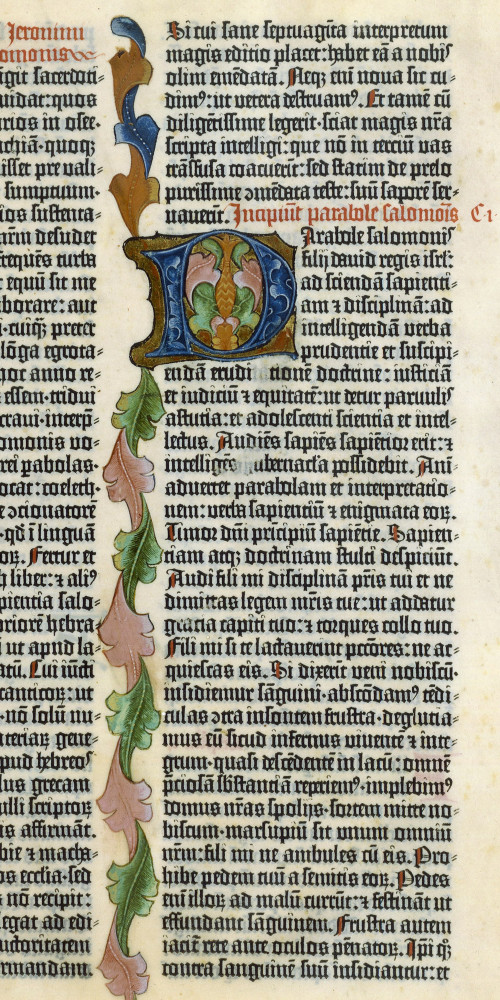 Jeronimi
omonis
igit sacerdoti-
uidat: quos
rios in osee.
chiā. quoqꝫ
isset pre vali-
sumptuum.
ios sustenta-
nr̄m desudet
frequēs turba
equū sit me
borare: aut
. cuiqꝫ preter
lōga egrota-
hoc anno re-
essem. tridui
craui. interp̄-
omonis vo-
rei pabolas.
ocat: coeleth.
e ↄcionatorē
. qd̄ ī linguā
oꝝ. Fertur et
h liber: ⁊ aliꝰ
pientia salo-
priorē hebra-
ut apud la-
atū. Cui iūcti
canticoꝝ: ut
. nō solū nu-
teriaꝝ gene-
pud hebreoſ
lus grecam
ulli scriptoꝝ
is affirmāt.
bie ⁊ macha-
os ecclīa. sed
nō recipit:
legat ad edi-
uctoritatem
rmandam.
Si cui sane septuagīta interpretum
magis editio placet: habet eā a nobis
olim emēdatā. Neqꝫ enī noua sic cu-
dimꝰ: ut vetera destruamꝰ. Et tamē cū
diligētissime legerit. sciat magis nr̄a
scripta intelligi: que nō in terciū vas
trāsfusa coacuerīt: sed statim de prelo
purissime ↄmēdata teste: suū saporē ser-
uauerīt. Incipiūt parabole salomōis C i
Parabole salomonis
filij dauid regis isrl̄:
ad sciendā sapienti-
am ⁊ disciplinā: ad
intelligendā verba
prudentie et suscipi-
endā erudi tionē doctrine: iusticiā
et iudiciū ⁊ equitatē: ut detur paruulis
astutia: et adolescenti scientia et intel-
lectus. Audiēs sapiēs sapiētior erit: ⁊
intelligēs ubernacla possidebit. Ani-
aduertet parabolam et interpretatio-
nem: verba sapientiū ⁊ enigmata eoꝝ.
Timor dn̄i prīcipiū sapiētie. Sapien-
tiam atqꝫ doctrinam stulti despiciūt.
Audi fili mi disciplinā pr̄is tui et ne
dimittas legem mr̄is tue: ut addatur
gracia capiti tuo: ⁊ torques collo tuo.
Fili mi si te lactauerint pctōres: ne ac-
quiescas eis. Si dixerīt veni nobiscū.
insidiemur sāguini. abscōdamꝰ tēdi-
culas ↄtra insontem frustra. deglutia-
mus eū sicud infernus viuentē ⁊ inte-
grum. quasi descēdentē in lacū: omnē
p̄ciosā sb̄stanciā reperiemꝰ. implebimꝰ
domus nr̄as spolijs. sortem mitte no-
biscum. marsupiū sit vnum omniū
nr̄m: fili mi ne ambules cū eis. Pro-
hibe pedem tuū a semitis eoꝝ. Pedes
enī illoꝝ ad malū currūt: ⁊ festināt ut
effundant sāguinem. Frustra autem
iacit̄ rete ante oculos pēnatoꝝ. Ip̄i qꝫ
contra sanguinē suū insidiantur: et